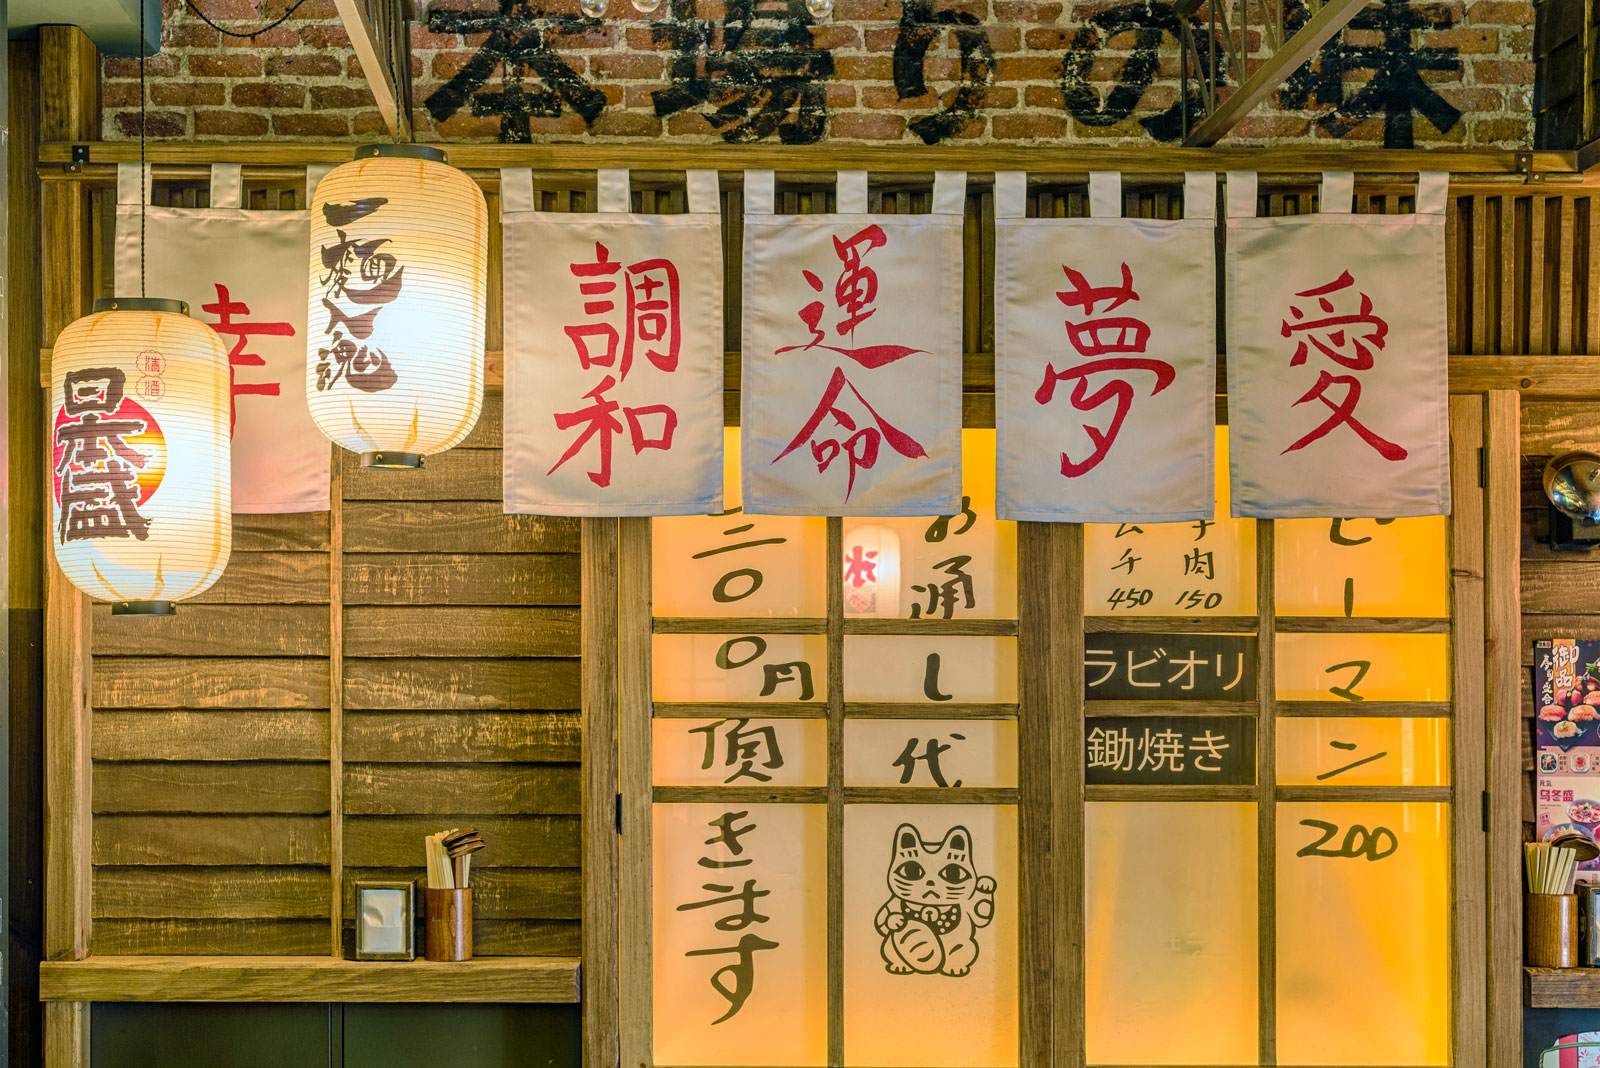 本場りの味
愛
夢
運命
調和
幸
一麺入魂
清酒
日本盛
ビーマン
200
肉
150
ムチ
450
ラビオリ
鋤焼き
お通し代
二〇〇円
頂きます
御品